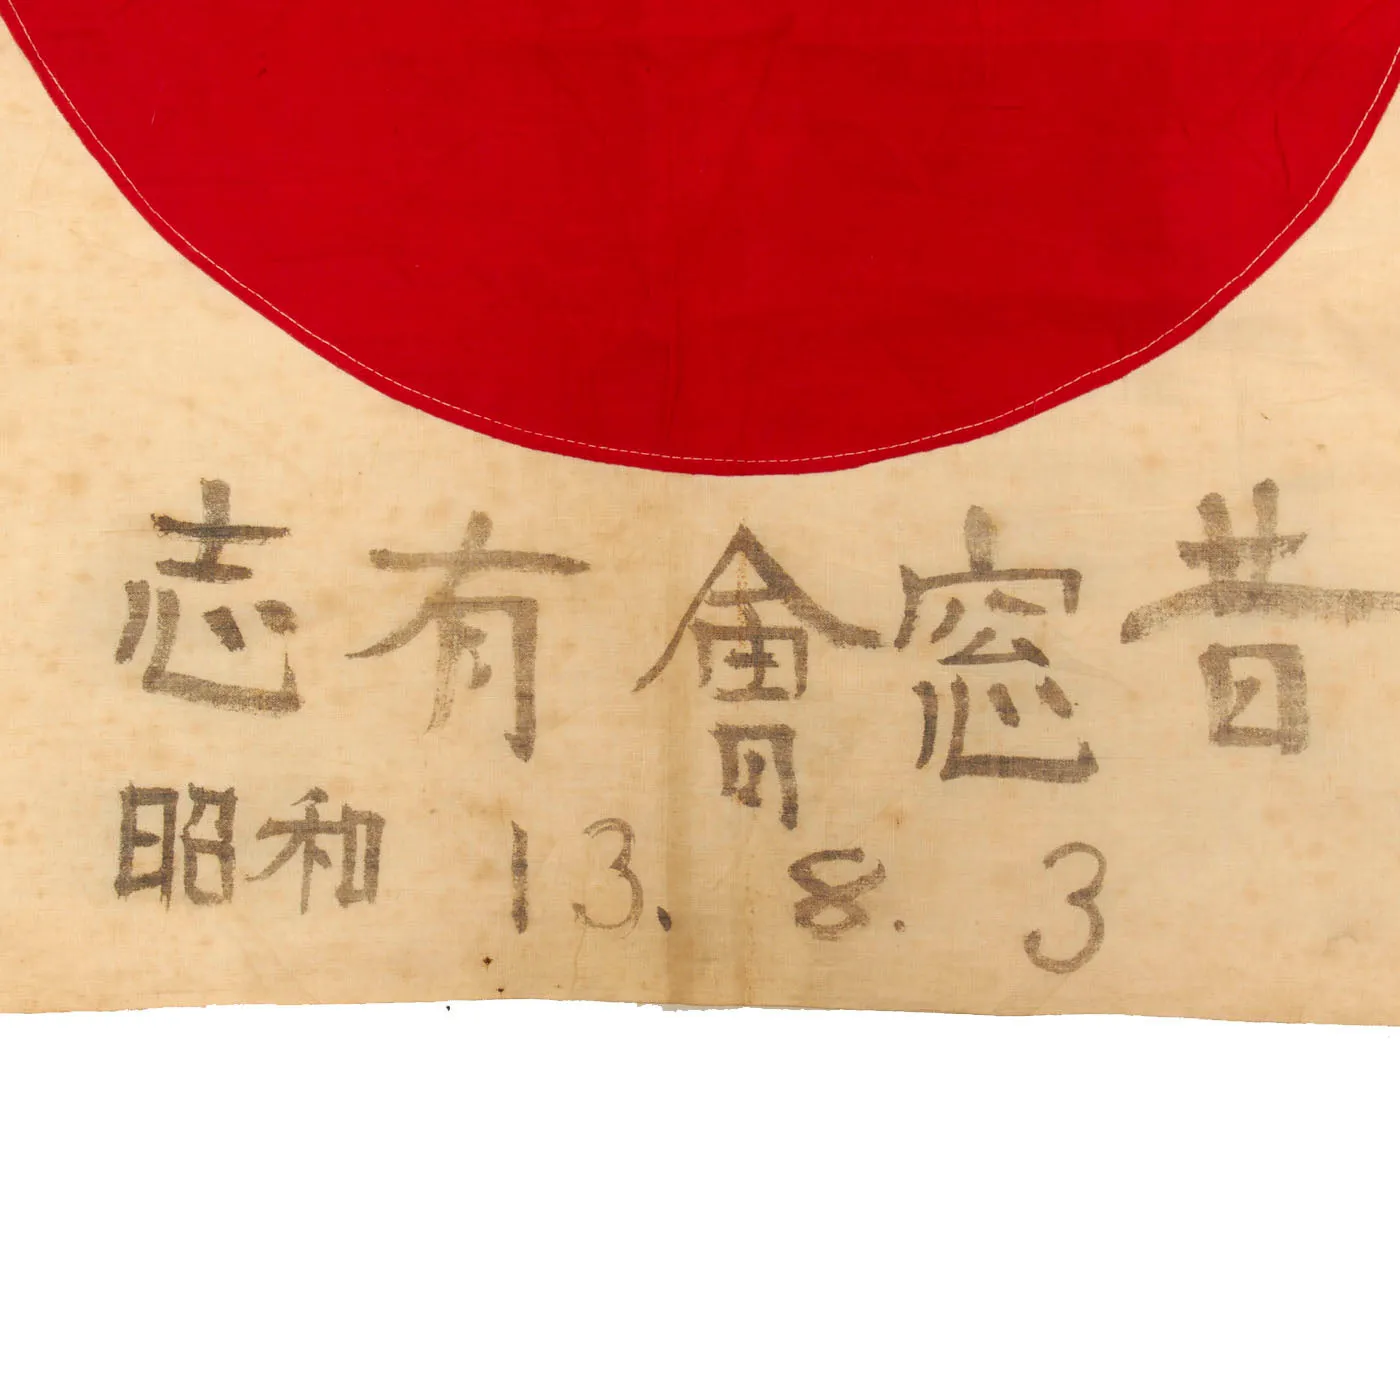 昔窓會有志
昭和 13. 8. 3